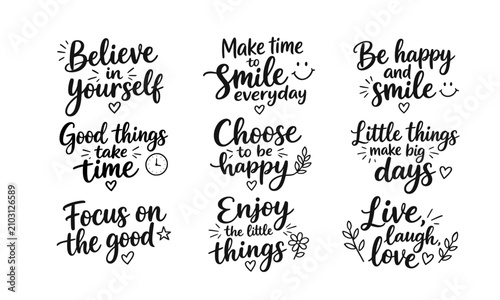 Believe
in
yourself
Make time
to
Smile
everyday
Be happy
and
smile
Good things
take
time
Choose
to be
happy
Little things
make big
days
Focus on
the good
Enjoy
the little
things
Live,
laugh,
love
Adobe Stock | #2103126589